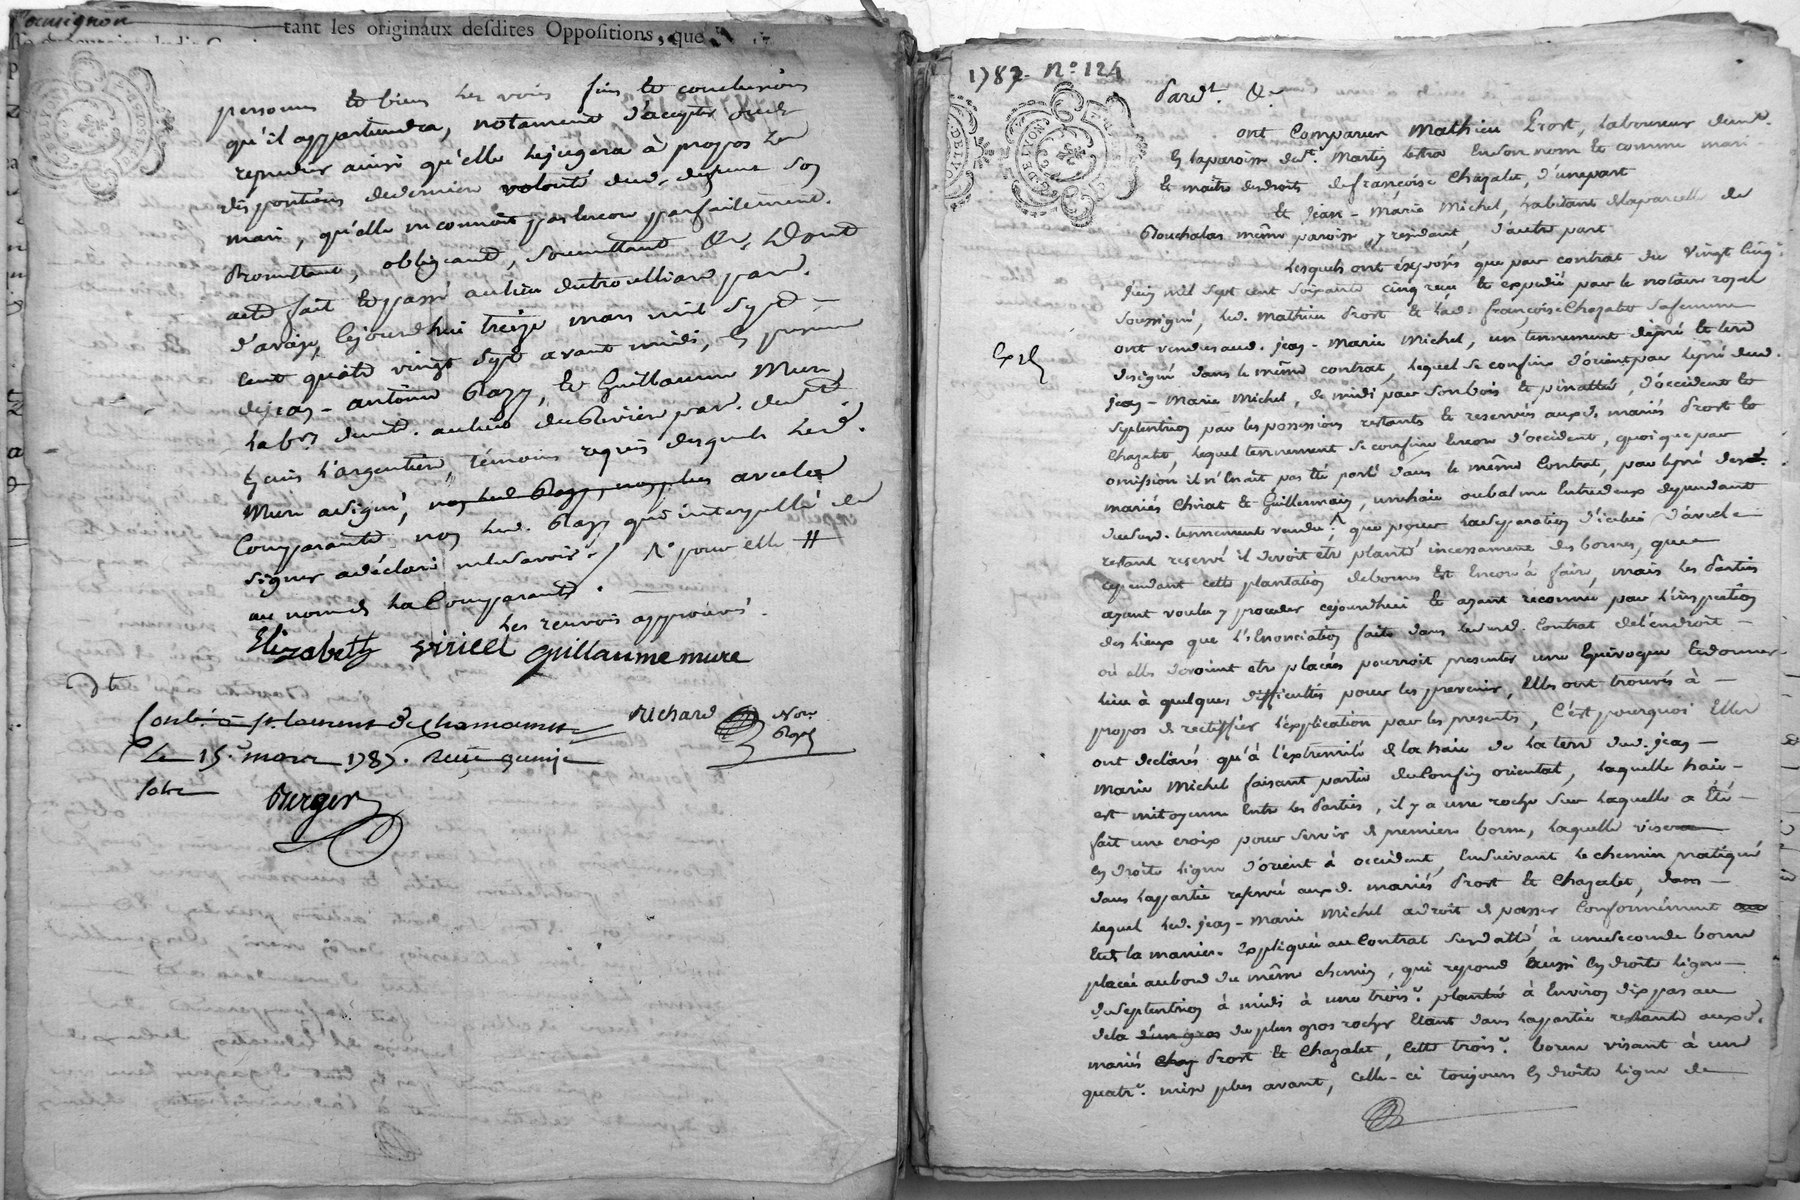 tant les originaux desdites Oppositions, que
personne et biens les voies fins et conclusions
qu'il appartiendra, notament d'accepter ou de
repudier ainsi qu'elle le jugera à propos les
dispositions de derniere volonté dud. defunt son
mari, qu'elle ne connoit pas encore parfaitement.
Promettant, obligeant, Soumettant &c. Dont
acte fait et passé au lieu de trouilliard par.
d'araize, cejourd'hui treize mars mil sept
cent quatre vingt sept avant midi, en presence
de jean-antoine Razy, et Guillaume Mure,
lab.rs dem.t. au lieu du Rivier par. de st.
Genis l'argentiere, témoins requis desquels led.
Mure a signé, non led. Razy, non plus avec la
Comparante non led. Razy qui interpellé de
signer a déclaré ne le savoir. / R. pour elle #
au nom de la Comparante.
les renvois approuvés.
Elizabeth Viricel Guillaume mure
Dte
Conlé a st laurent de Chamousset
Le 15.e mars 1787. reçu quinze
sols
Richard Nore Royal
Burger
1787. N.o 124
Pard.t. &c.
ont Comparu Mathieu Prost, Laboureur dem.t.
en la paroisse de st. Martin lestra en son nom et comme mari
et maitre des droits de françoise Chazalet, d'une part
et Jean-Marie Michel, habitant de la parcelle de
Bouchalas même paroisse y residant, d'autre part
Lesquels ont exposés que par contrat du vingt cinq
juin mil sept cent soixante cinq reçu et expedié par le notaire royal
soussigné, led. Mathieu Prost et lad. françoise Chazalet sa femme
ont vendus aud. jean-Marie Michel, un tennement de pré et terre
designé dans le même contrat, lequel se confine d'orient par le pré dud.
Exp.
jean-Marie Michel, de midi par son bois et pinattée, d'occident et
septentrion par les possessions restants et reservées auxd. mariés Prost et
Chazalet, lequel tennement se confine encore d'occident, quoique par
omission il n'en ait pas été parlé dans le même Contrat, par le pré desd.
mariés Chirat et Guillermain, une haie ou balme entredeux dependant
dusud. tennement vendu; que pour la separation d'icelui d'avec le
restant reservé il devoit etre planté incessament des bornes, que
cependant cette plantation de bornes est encore à faire, mais les Parties
ayant voulu y proceder cejourd'hui et ayant reconnu par l'inspection
des lieux que l'enonciation faite dans le susd. Contrat de l'endroit
où elles devoient etre placées pourroit presenter une equivoque et donner
lieu à quelques difficultés pour les prevenir, Elles ont trouvés à
propos de rectiffier l'explication par les presentes, C'est pourquoi elles
ont declarés qu'à l'extremité de la haie de la terre dud. jean
Marie Michel faisant partie du Confin oriental, laquelle haie
est mitoyenne entre les Parties, il y a une roche sur laquelle a été
fait une croix pour servir de premiere borne, laquelle visera
en droite ligne d'orient à occident, ensuivant le chemin pratiqué
dans la partie reservée auxd. mariés Prost et Chazalet, dans
lequel led. jean-Marie Michel a droit de passer Conformément au
et de la maniere expliquée au Contrat susdatté, à une seconde borne
placée au bord du même chemin, qui repond aussi en droite ligne
du septentrion à midi à une trois.e plantée à environ dix pas au
dela d'un gros du plus gros rocher etant dans la partie restante auxd.
mariés Chaz Prost et Chazalet, Cette trois.e borne visant à une
quatr.e mise plus avant, celle-ci toujours en droite ligne de